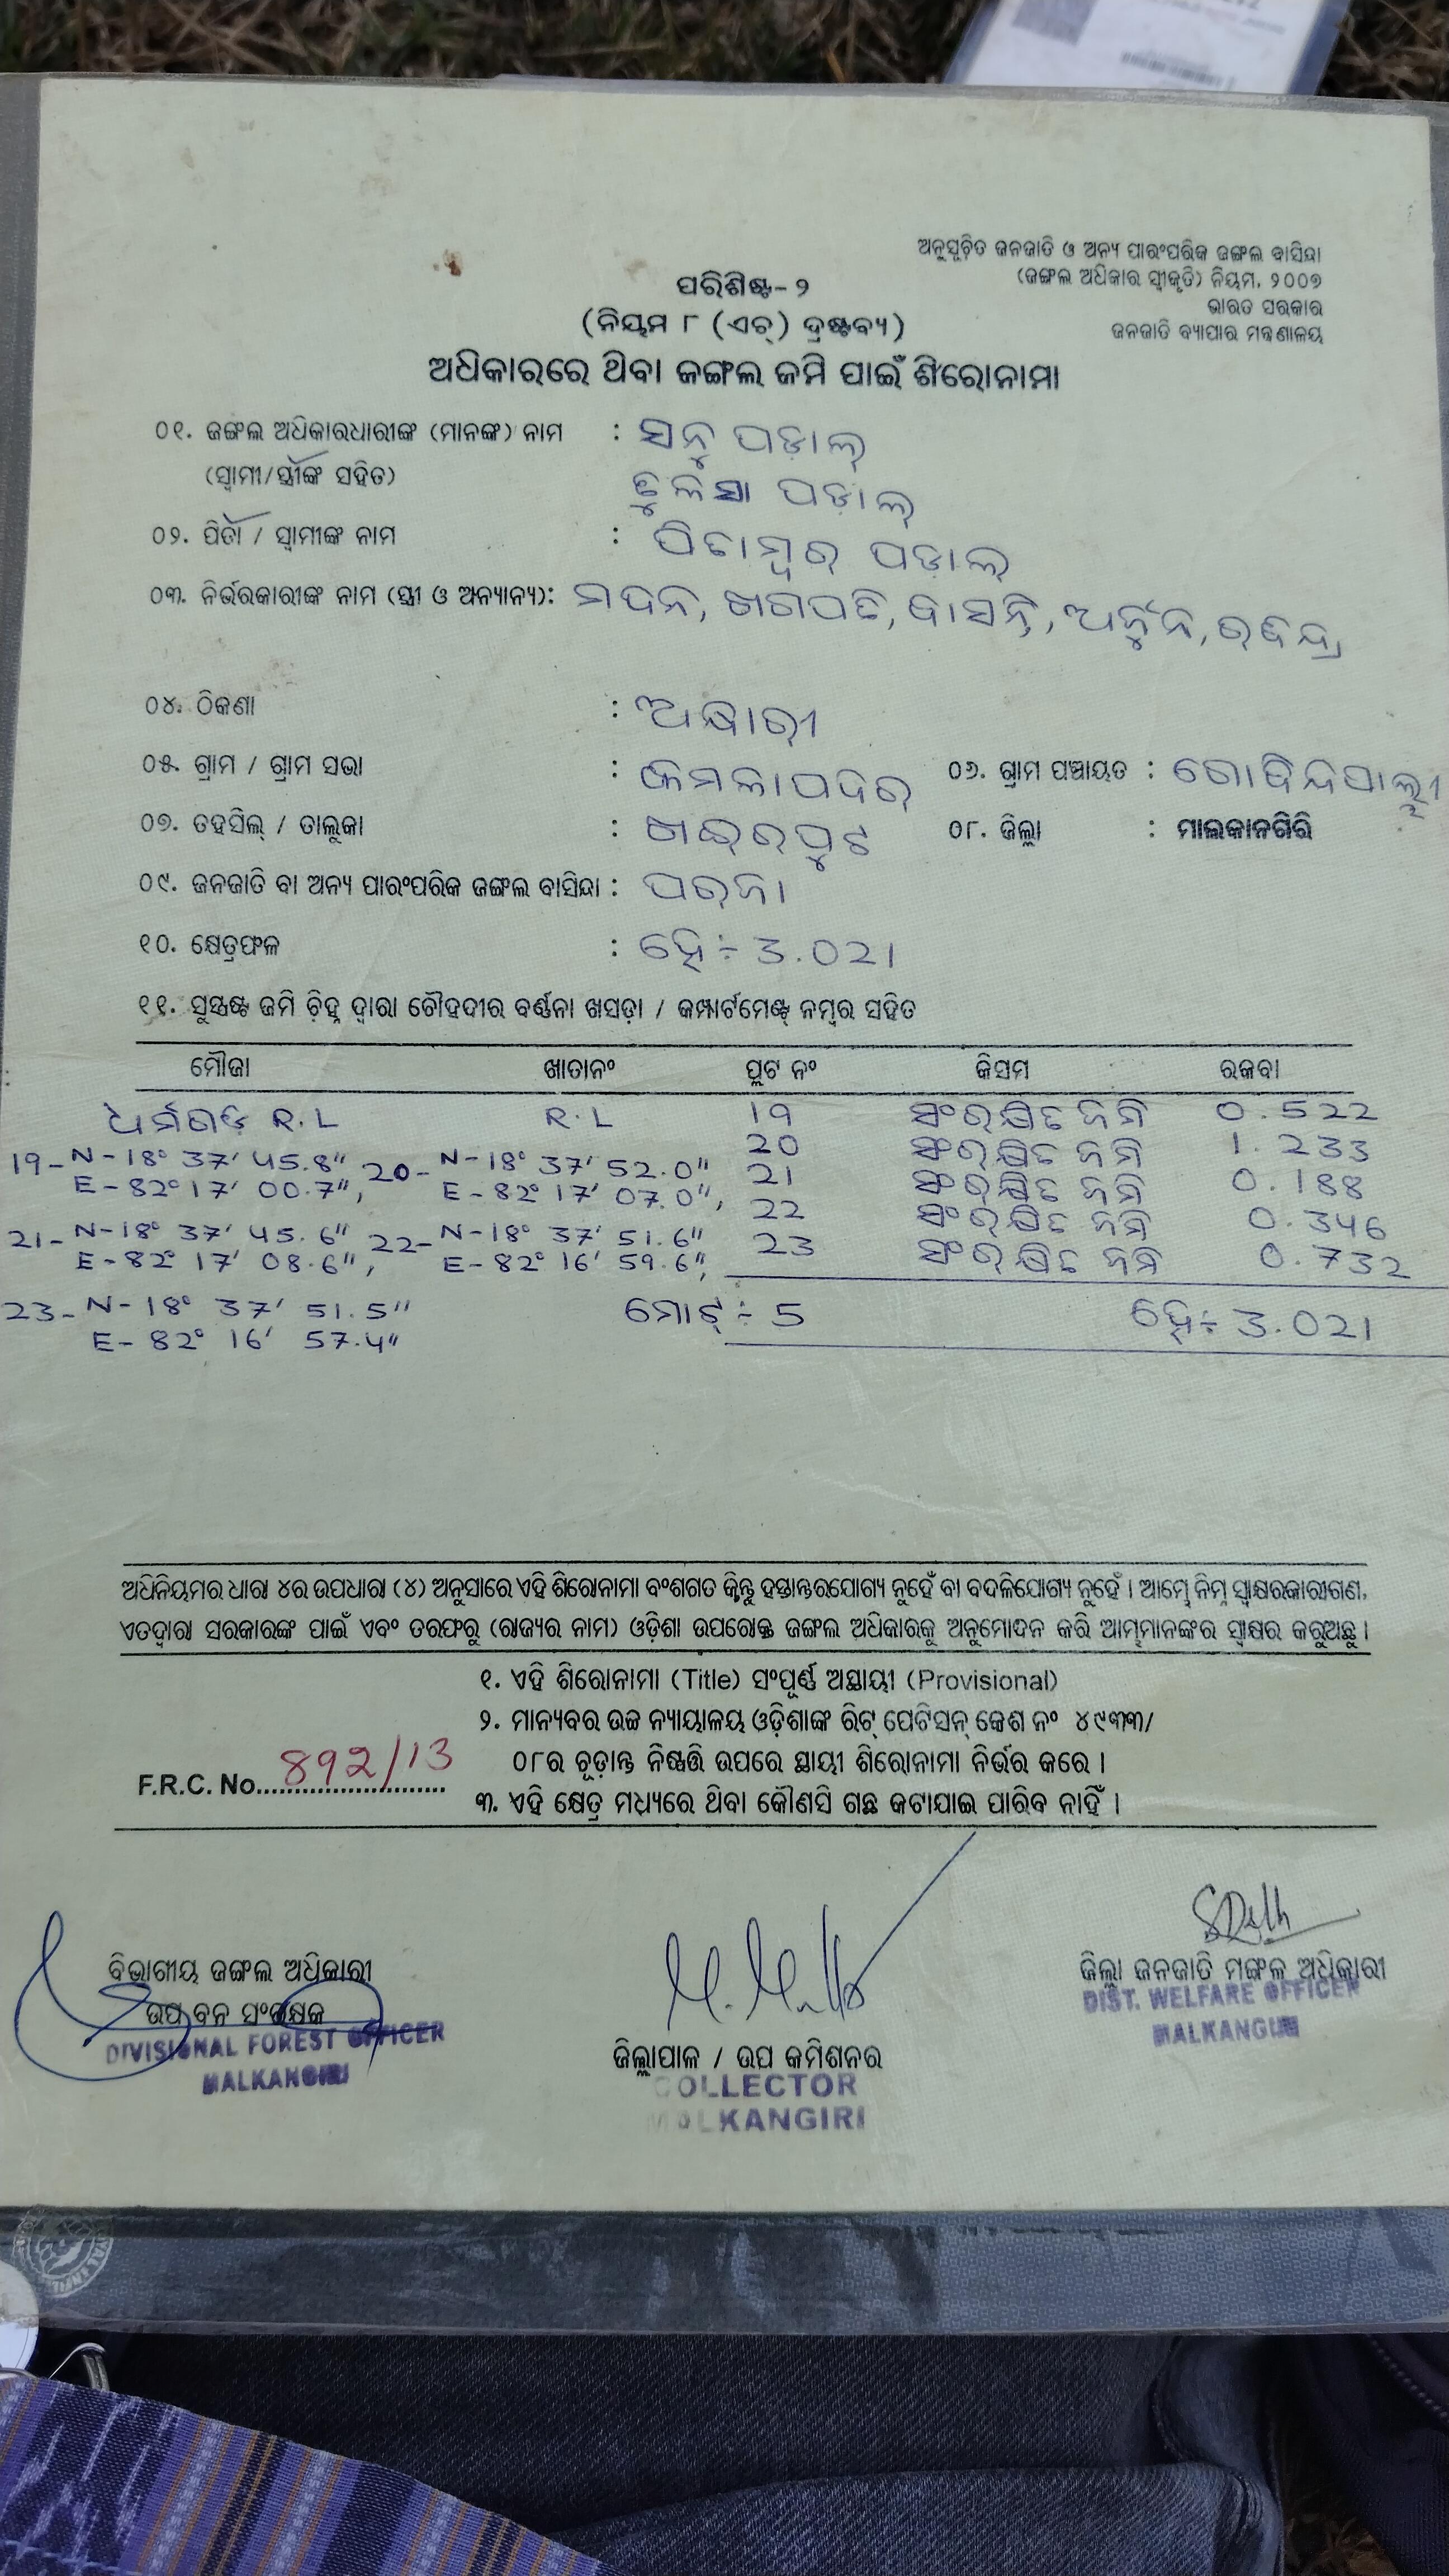 ଅନୁସୂଚିତ ଜନଜାତି ଓ ଅନ୍ୟ ପାରଂପରିକ ଜଙ୍ଗଲ ବାସିନ୍ଦା
(ଜଙ୍ଗଲ ଅଧିକାର ସ୍ୱୀକୃତି) ନିୟମ, ୨୦୦୭
ଭାରତ ସରକାର
ଜନଜାତି ବ୍ୟାପାର ମନ୍ତ୍ରଣାଳୟ
ପରିଶିଷ୍ଟ-୨
(ନିୟମ ୮ (ଏଚ୍) ଦ୍ରଷ୍ଟବ୍ୟ)
ଅଧିକାରରେ ଥିବା ଜଙ୍ଗଲ ଜମି ପାଇଁ ଶିରୋନାମା
୦୧. ଜଙ୍ଗଲ ଅଧିକାରଧାରୀଙ୍କ (ମାନଙ୍କ) ନାମ : ସନୁ ପଡ଼ାଲ୍
(ସ୍ୱାମୀ/ସ୍ତ୍ରୀଙ୍କ ସହିତ) ତୁଳସା ପଡ଼ାଲ୍
୦୨. ପିତା / ସ୍ୱାମୀଙ୍କ ନାମ : ପିତାମ୍ବର ପଡ଼ାଲ୍
୦୩. ନିର୍ଭରକାରୀଙ୍କ ନାମ (ସ୍ତ୍ରୀ ଓ ଅନ୍ୟାନ୍ୟ): ମଦନ, ଖଗପତି, ବାସନ୍ତି, ଅର୍ଜୁନ, ରବିନ୍ଦ୍ର
୦୪. ଠିକଣା :
୦୫. ଗ୍ରାମ / ଗ୍ରାମ ସଭା : କମଳାପଦର ୦୬. ଗ୍ରାମ ପଞ୍ଚାୟତ : ଗୋବିନ୍ଦପାଲ୍ଲୀ
୦୭. ତହସିଲ୍ / ତାଲୁକା : ଖଇରପୁଟ ୦୮. ଜିଲ୍ଲା : ମାଲକାନଗିରି
୦୯. ଜନଜାତି ବା ଅନ୍ୟ ପାରଂପରିକ ଜଙ୍ଗଲ ବାସିନ୍ଦା : ପରଜା
୧୦. କ୍ଷେତ୍ରଫଳ : ହେ÷ 3.021
୧୧. ସୁସ୍ପଷ୍ଟ ଜମି ଚିହ୍ନ ଦ୍ୱାରା ଚୌହଦୀର ବର୍ଣ୍ଣନା ଖସଡ଼ା / କମ୍ପାର୍ଟମେଣ୍ଟ୍ ନମ୍ବର ସହିତ
ମୌଜା ଖାତାନଂ ପ୍ଲଟ ନଂ କିସମ ରକବା
ଧର୍ମଗଡ଼ R.L R.L 19 ସଂରକ୍ଷିତ ଜମି 0.522
19- N-18° 37' 45.8" 20- N-18° 37' 52.0" 20 ସଂରକ୍ଷିତ ଜମି 1.233
E-82° 17' 00.7", E-82° 17' 07.0", 21 ସଂରକ୍ଷିତ ଜମି 0.188
21- N-18° 37' 45.6" 22- N-18° 37' 51.6" 22 ସଂରକ୍ଷିତ ଜମି 0.346
E-82° 17' 08.6", E-82° 16' 59.6", 23 ସଂରକ୍ଷିତ ଜମି 0.732
23- N-18° 37' 51.5" ମୋଟ୍ ÷ 5 ହେ÷ 3.021
E-82° 16' 57.4"
ଅଧିନିୟମର ଧାରା ୪ର ଉପଧାରା (୪) ଅନୁସାରେ ଏହି ଶିରୋନାମା ବଂଶଗତ କିନ୍ତୁ ହସ୍ତାନ୍ତରଯୋଗ୍ୟ ନୁହେଁ ବା ବଦଳିଯୋଗ୍ୟ ନୁହେଁ । ଆମ୍ଭେ ନିମ୍ନ ସ୍ୱାକ୍ଷରକାରୀଗଣ,
ଏତଦ୍ୱାରା ସରକାରଙ୍କ ପାଇଁ ଏବଂ ତରଫରୁ (ରାଜ୍ୟର ନାମ) ଓଡ଼ିଶା ଉପରୋକ୍ତ ଜଙ୍ଗଲ ଅଧିକାରକୁ ଅନୁମୋଦନ କରି ଆମ୍ଭମାନଙ୍କର ସ୍ୱାକ୍ଷର କରୁଅଛୁ ।
୧. ଏହି ଶିରୋନାମା (Title) ସଂପୂର୍ଣ୍ଣ ଅସ୍ଥାୟୀ (Provisional)
୨. ମାନ୍ୟବର ଉଚ୍ଚ ନ୍ୟାୟାଳୟ ଓଡ଼ିଶାଙ୍କ ରିଟ୍ ପେଟିସନ୍ କେଶ ନଂ ୪୯୩୩/
୦୮ର ଚୂଡ଼ାନ୍ତ ନିଷ୍ପତ୍ତି ଉପରେ ସ୍ଥାୟୀ ଶିରୋନାମା ନିର୍ଭର କରେ ।
F.R.C. No. 892/13
୩. ଏହି କ୍ଷେତ୍ର ମଧ୍ୟରେ ଥିବା କୌଣସି ଗଛ କଟାଯାଇ ପାରିବ ନାହିଁ ।
ବିଭାଗୀୟ ଜଙ୍ଗଲ ଅଧିକାରୀ
ଉପ ବନ ସଂରକ୍ଷକ
DIVISIONAL FOREST OFFICER
MALKANGIRI
ଜିଲ୍ଲାପାଳ / ଉପ କମିଶନର
COLLECTOR
MALKANGIRI
ଜିଲ୍ଲା ଜନଜାତି ମଙ୍ଗଳ ଅଧିକାରୀ
DIST. WELFARE OFFICER
MALKANGIRI